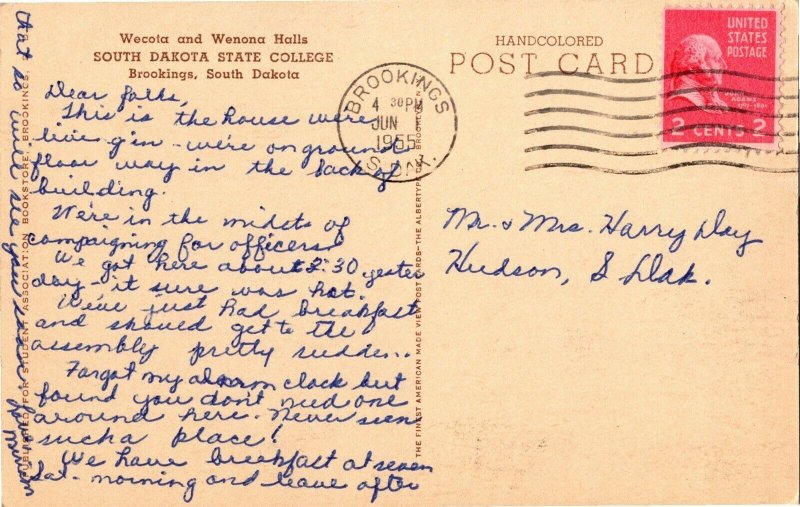 Wecota and Wenona Halls
SOUTH DAKOTA STATE COLLEGE
Brookings, South Dakota
HANDCOLORED
POST CARD
UNITED
STATES
POSTAGE
JOHN
ADAMS
2 CENTS 2
BROOKINGS
4 30PM
JUN
1955
S. DAK.
Dear folks,
This is the house were
live g'in - we're on ground
floor way in the back of
building.
We're in the midsts of
compaigning for officers.
We got here about 2:30 yester
day - it sure was hot.
We've just had breakfast
and should get to the
assembly pretty sudden..
Forgot my alarm clock but
found you don't need one
around here. Never seen
such a place!
We have breakfast at seven
Sat - morning and leave after
that so will see you
Mr. & Mrs. Harry Day
Hudson, S Dak.
PUBLISHED FOR STUDENT ASSOCIATION BOOKSTORE, BROOKINGS,
THE FINEST AMERICAN MADE VIEW POST CARDS—THE ALBERTYPE